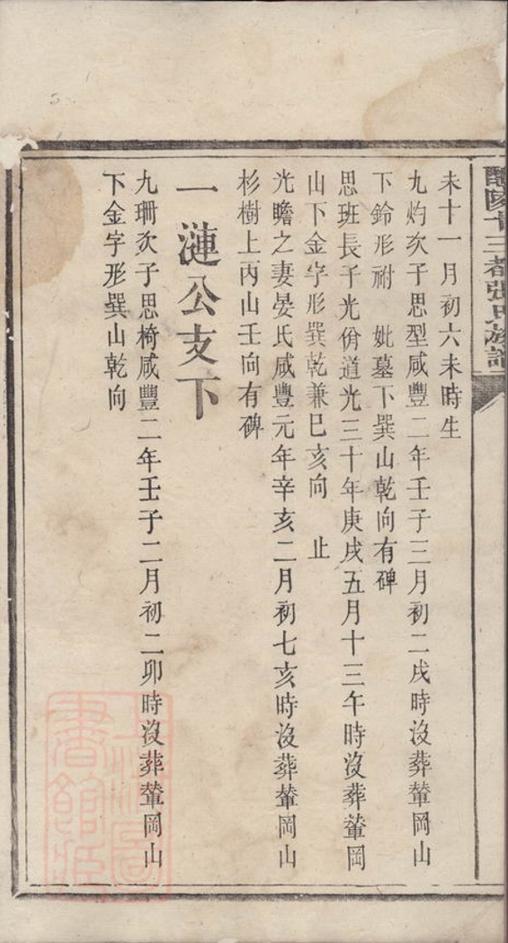 醴陵十三都張氏族譜
未十一月初六未時生
九灼次子思型咸豐二年壬子三月初二戌時沒葬輋岡山
下鈴形祔 妣墓下巽山乾向有碑
思班長子光佾道光三十年庚戌五月十三午時沒葬輋岡
山下金字形巽乾兼巳亥向 止
光瞻之妻晏氏咸豐元年辛亥二月初七亥時沒葬輋岡山
杉樹上丙山壬向有碑
一漣公支下
九珊次子思椅咸豐二年壬子二月初二卯時沒葬輋岡山
下金字形巽山乾向